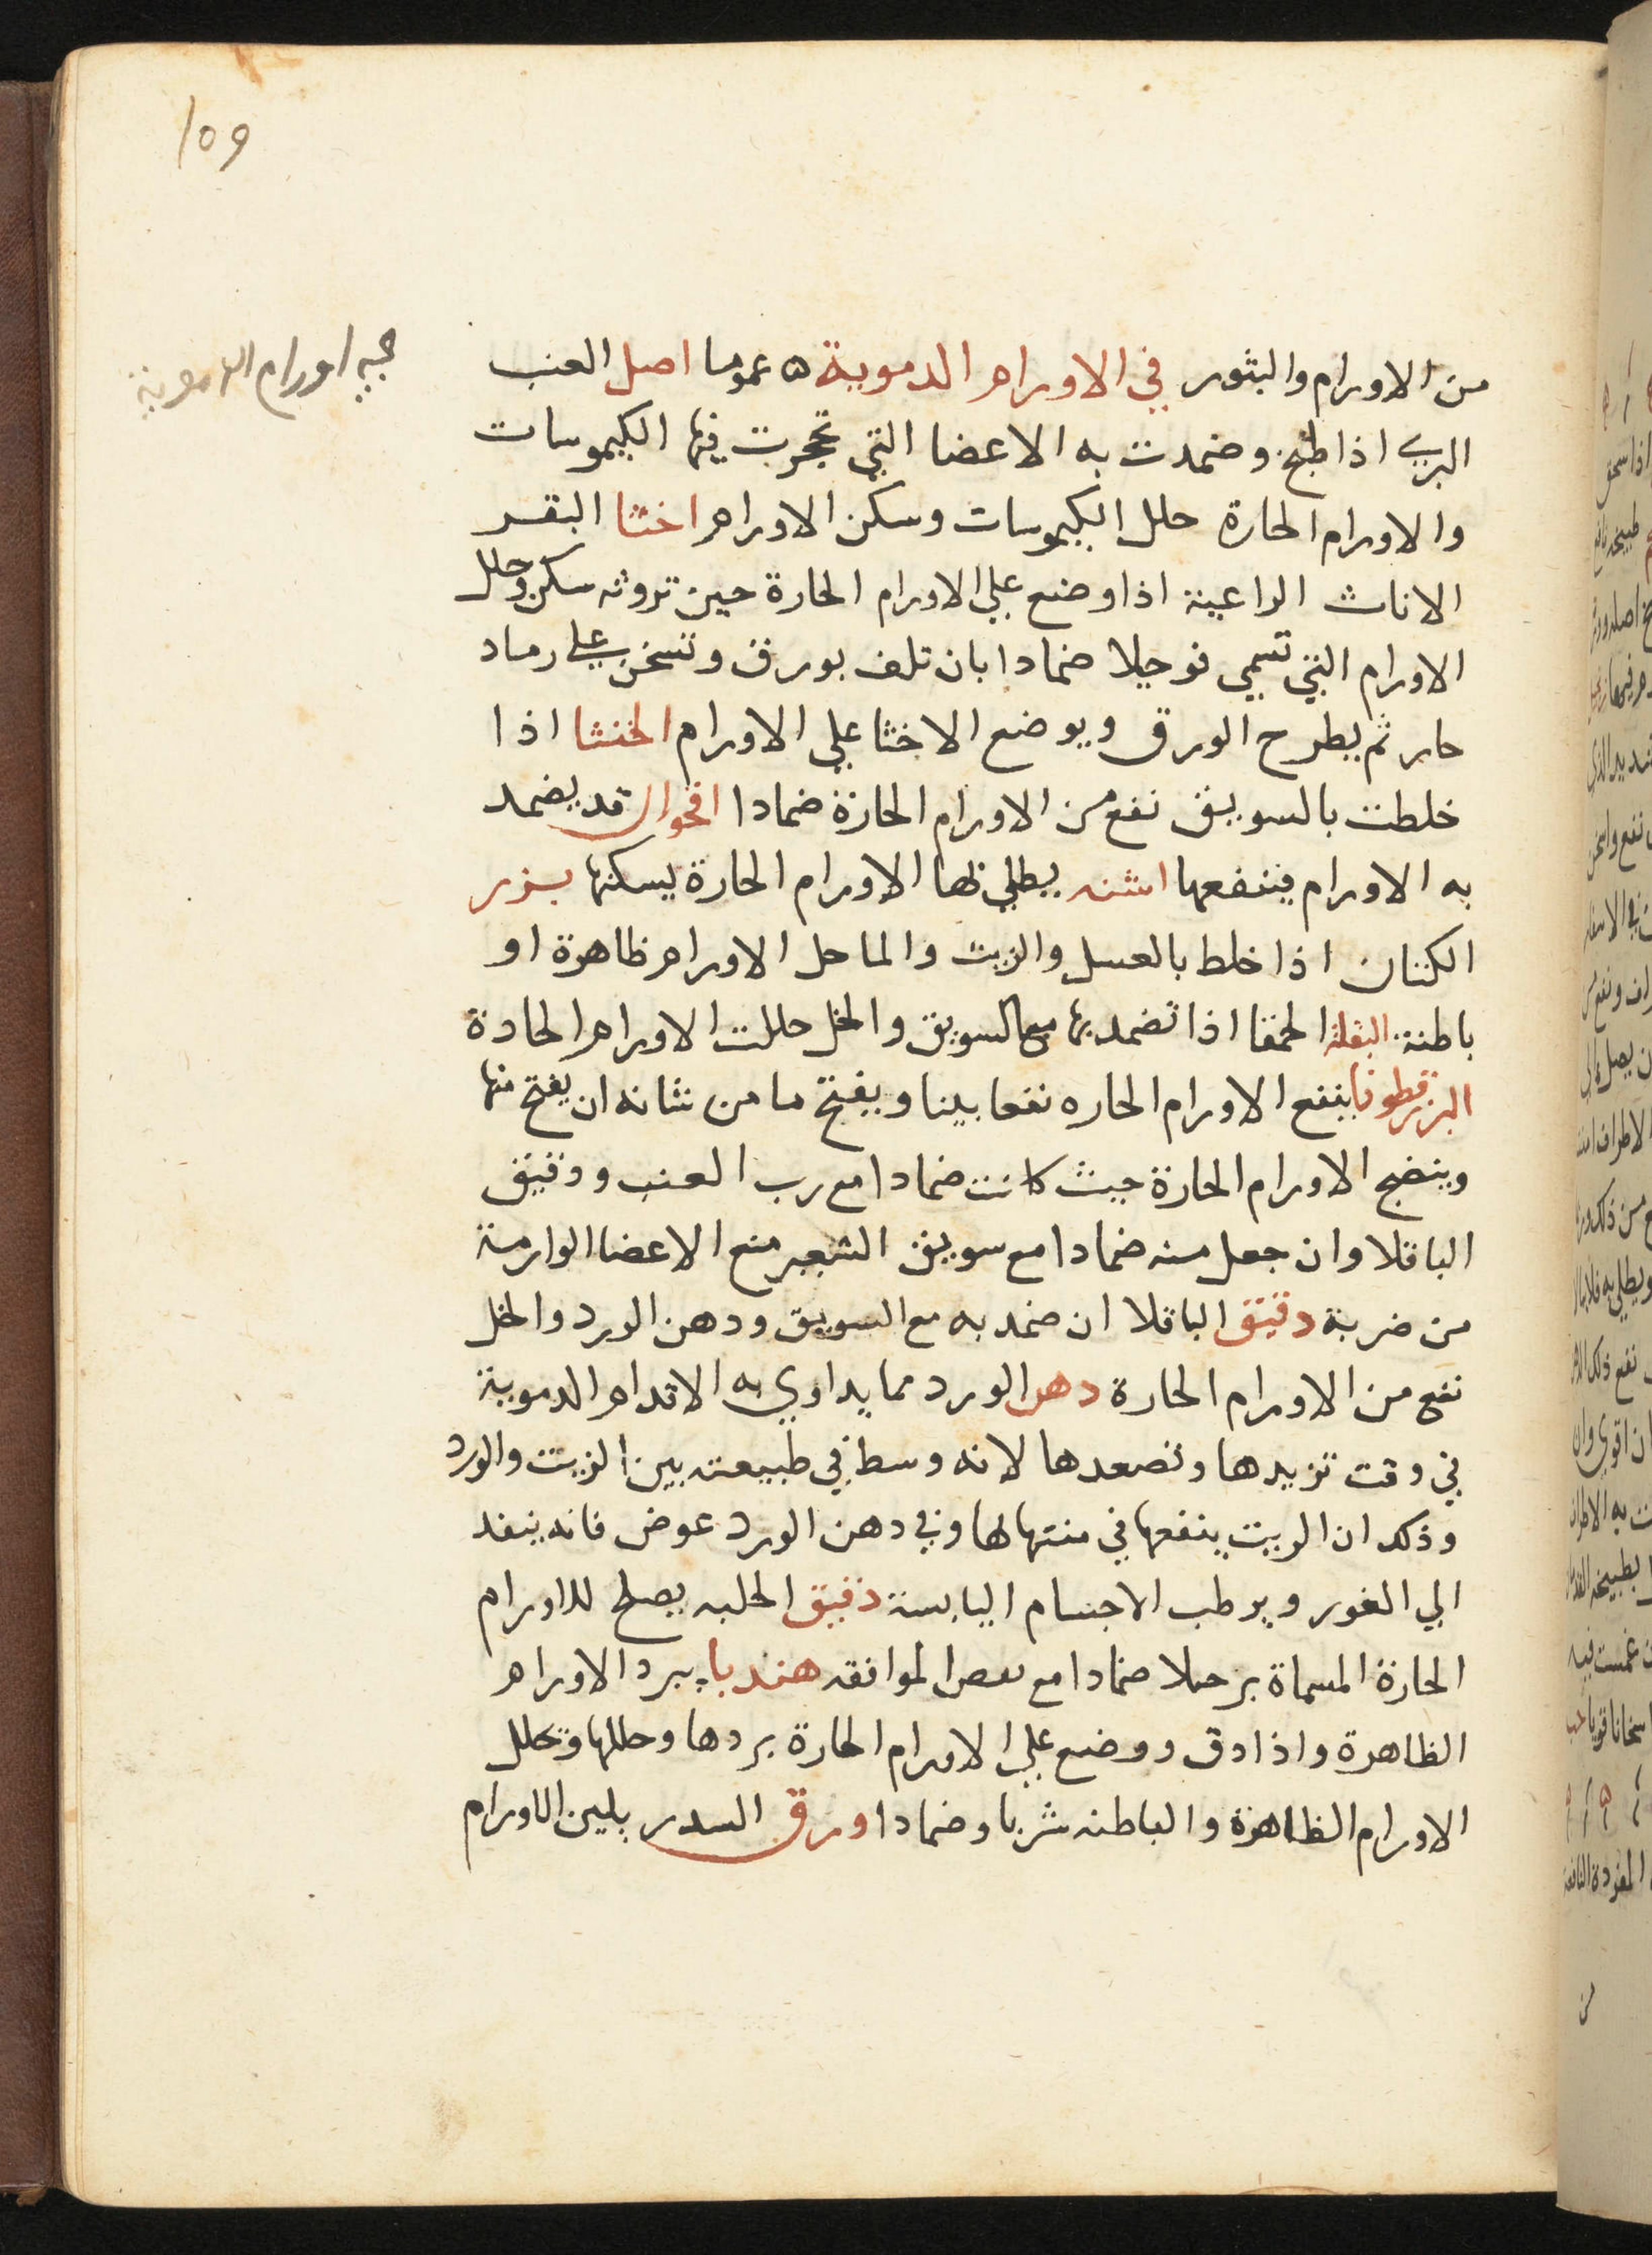 109
في اورام الدموية
من الاورام والبثور في الاورام الدموية ٥ عموما اصل العنب
البري اذا طبخ وضمدت به الاعضا التي تحجرت فيها الكيموسات
والاورام الحارة حلل الكيموسات وسكن الاورام اخثا البقر
الاناث الراعية اذا وضع علي الاورام الحارة حين تروثه سكن وحلل
الاورام التي تسمي فوجيلا ضمادا بان تلف بورق وتسخن علي رماد
حار ثم يطرح الورق ويوضع الاخثا علي الاورام الخنثا اذا
خلطت بالسويق نفع من الاورام الحارة ضمادا اقحوان قد يضمد
به الاورام فينفعها اشنه يطلي بها الاورام الحارة يسكنها بزر
الكتان اذا خلط بالعسل والزيت والما حل الاورام ظاهرة او
باطنة البقلة الحمقا اذا تضمد بها مع السويق والخل حللت الاورام الحادة
البزرقطونا ينفع الاورام الحاره نفعا بينا ويفتح ما من شانه ان يفتح منها
وينضج الاورام الحارة حيث كانت ضمادا مع رب العنب ودقيق
الباقلا وان جعل منه ضمادا مع سويق الشعير منع الاعضا الوارمة
من ضربة دقيق الباقلا ان ضمد به مع السويق ودهن الورد والخل
نفع من الاورام الحارة دهن الورد مما يداوي به الاقدام الدموية
في وقت تزيدها وتصعدها لانه وسط في طبيعته بين الزيت والورد
وذلك ان الزيت ينفعها في منتهالها وفي دهن الورد عوض فانه ينفد
الي الغور ويرطب الاجسام اليابسة دقيق الحلبه يصلح للاورام
الحارة المسماة برحملا ضمادا مع بعض الموافقه هندبا يبرد الاورام
الظاهرة واذا دق ووضع علي الاورام الحارة بردها وحللها وتحلل
الاورام الظاهرة والباطنه شربا وضمادا ورق السدر يلين الاورام